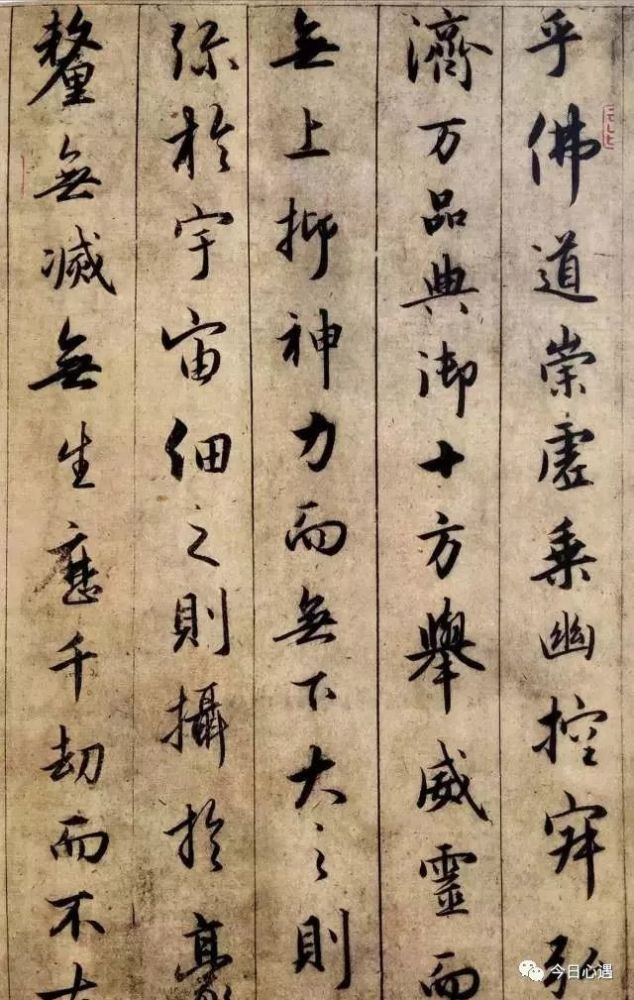 乎佛道崇虛乘幽控寂弘
濟万品典御十方舉威靈而
無上抑神力而無下大之則
弥於宇宙細之則攝於毫
釐無滅無生歷千劫而不古
今日心遇